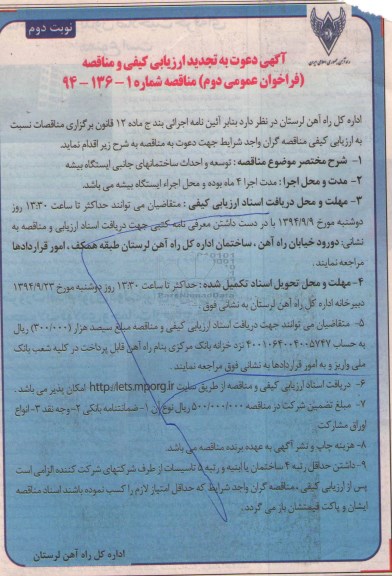 نوبت دوم
راه آهن جمهوری اسلامی ایران
آگهی دعوت به تجدید ارزیابی کیفی و مناقصه
(فراخوان عمومی دوم) مناقصه شماره ۱-۱۳۶-۹۴
اداره کل راه آهن لرستان در نظر دارد بنابر آئین نامه اجرائی بند ج ماده ۱۲ قانون برگزاری مناقصات نسبت
به ارزیابی کیفی مناقصه گران واجد شرایط جهت دعوت به مناقصه به شرح زیر اقدام نماید.
۱- شرح مختصر موضوع مناقصه : توسعه و احداث ساختمانهای جانبی ایستگاه بیشه
۲- مدت و محل اجرا : مدت اجرا ۴ ماه بوده و محل اجراء ایستگاه بیشه می باشد.
۳- مهلت و محل دریافت اسناد ارزیابی کیفی : متقاضیان می توانند حداکثر تا ساعت ۱۳:۳۰ روز
دوشنبه مورخ ۱۳۹۴/۹/۹ با در دست داشتن معرفی نامه کتبی جهت دریافت اسناد ارزیابی و مناقصه به
نشانی: دورود خیابان راه آهن ، ساختمان اداره کل راه آهن لرستان طبقه همکف ، امور قراردادها
مراجعه نمایند .
۴- مهلت و محل تحویل اسناد تکمیل شده : حداکثر تا ساعت ۱۳:۳۰ روز دوشنبه مورخ ۱۳۹۴/۹/۲۳
دبیرخانه اداره کل راه آهن لرستان به نشانی فوق .
۵- متقاضیان می توانند جهت دریافت اسناد ارزیابی کیفی و مناقصه مبلغ سیصد هزار (۳۰۰/۰۰۰) ریال
به حساب ۴۰۰۱۰۶۴۰۰۴۰۰۵۷۴۷ نزد خزانه بانک مرکزی بنام راه آهن قابل پرداخت در کلیه شعب بانک
ملی واریز و به امور قراردادها به نشانی فوق مراجعه نمایند.
۶- دریافت اسناد ارزیابی کیفی و مناقصه از طریق سایت http://iets.mporg.ir امکان پذیر می باشد .
۷- مبلغ تضمین شرکت در مناقصه ۵۰۰/۰۰۰/۰۰۰ ریال نوع آن ۱- ضمانتنامه بانکی ۲- وجه نقد ۳- انواع
اوراق مشارکت
۸- هزینه چاپ و نشر آگهی به عهده برنده مناقصه می باشد.
۹- داشتن حداقل رتبه ۴ ساختمان یا ابنیه و رتبه ۵ تاسیسات از طرف شرکتهای شرکت کننده الزامی است
پس از ارزیابی کیفی ، مناقصه گران واجد شرایط که حداقل امتیاز لازم را کسب نموده باشند اسناد مناقصه
ایشان و پاکت قیمتشان باز می گردد .
اداره کل راه آهن لرستان